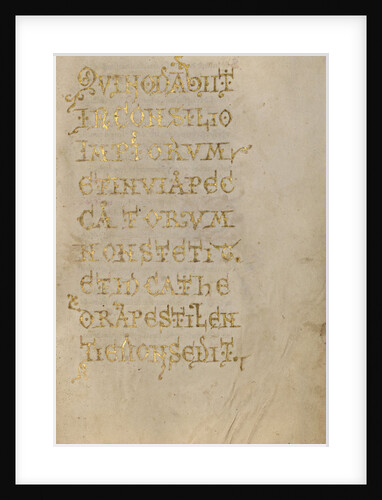 QUINONABIIT
INCONSILIO
IMPIORUM
ETINVIAPEC
CATORUM
NONSTETIT.
ETINCATHE
DRAPESTILEN
TIENONSEDIT.